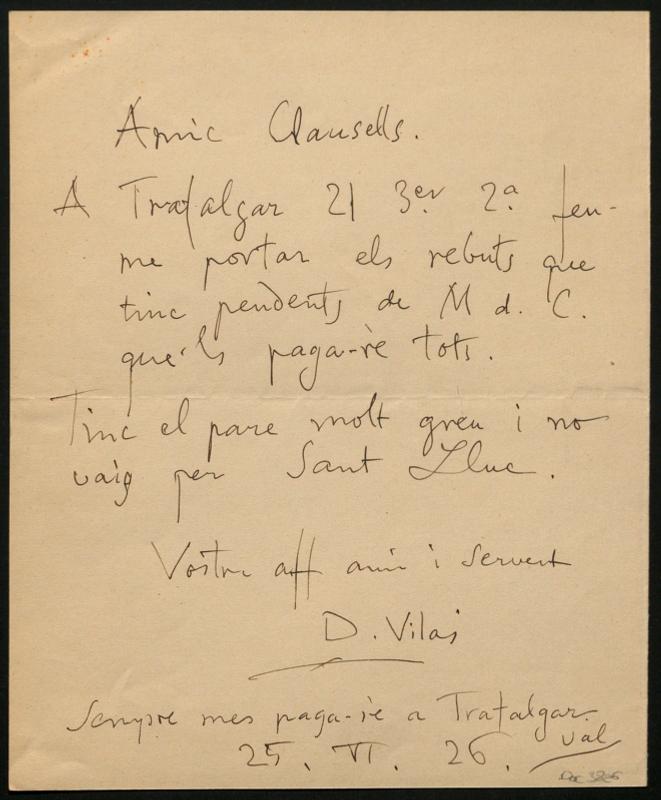 Amic Clausells.
A Trafalgar 21 3er 2a feu-
me portar els rebuts que
tinc pendents de M d. C.
que'ls paga-rè tots.
Tinc el pare molt greu i no
vaig per Sant Lluc.
Vostre aff amic i servent
D. Vilàs
Sempre mes paga-rè a Trafalgar.
val
25. VI. 26.